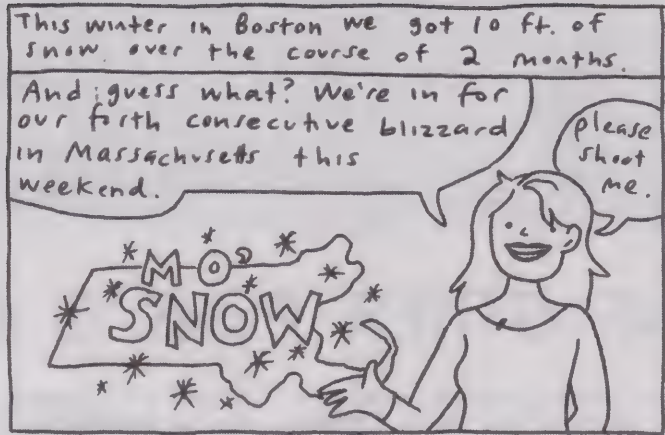 This winter in Boston we got 10 ft. of
snow over the course of 2 months.
And guess what? We're in for
our forth consecutive blizzard
in Massachusetts this
weekend.
please
shoot
me.
MO'
SNOW